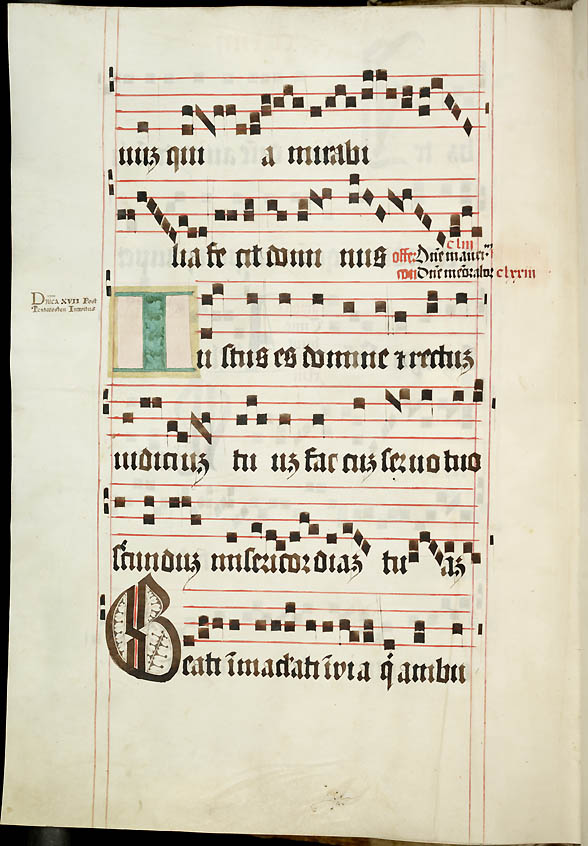 uuz qui a mirabi
lia fe cit domi nus offer: Dñe in auxi. clii
com Dñe memorabor clxxiii
Dnica XVII Post
Pentecosten Introitus
Iu stus es domine ⁊ rectuz
iudiciuz tu uz fac cuz seruo tuo
secunduz misericordiaz tu az
Beati īmaclati ī via q̇ ambu